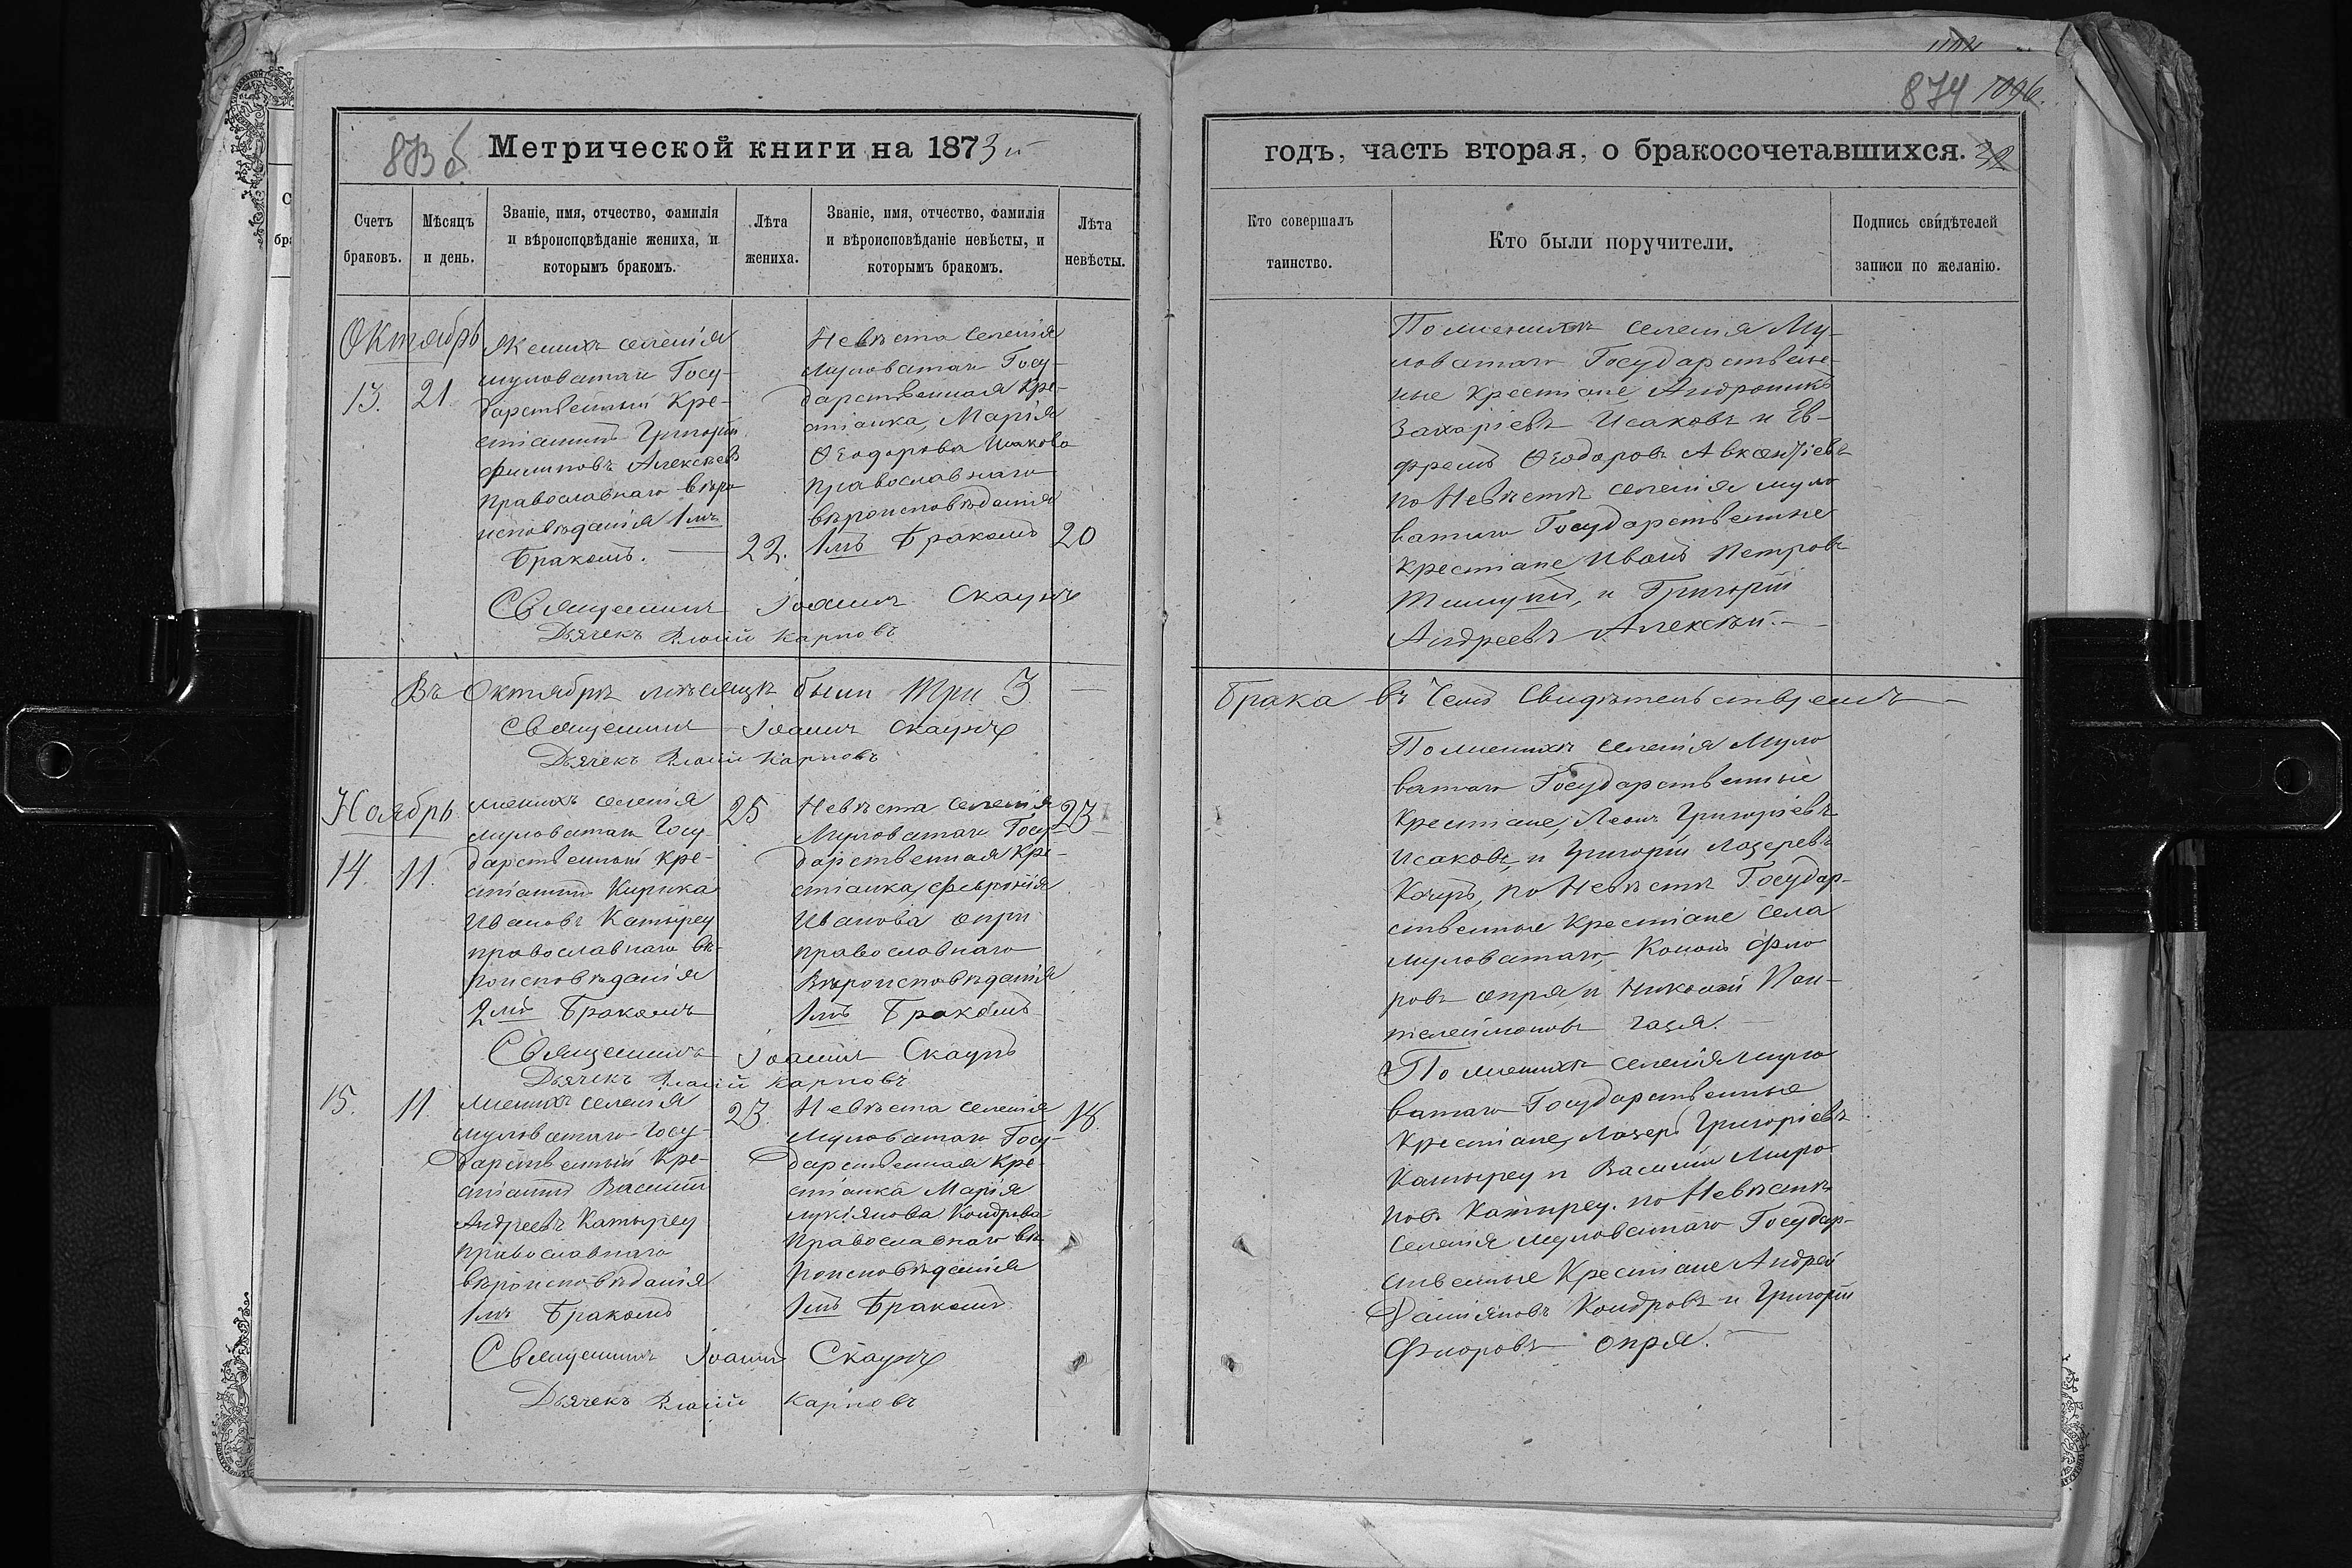 1102
873 б
874 1096.
Метрической книги на 1873 й
годъ, часть вторая, о бракосочетавшихся. 32
Счетъ браковъ.
Мѣсяцъ и день.
Званіе, имя, отчество, фамилія
и вѣроисповѣданіе жениха, и
которымъ бракомъ.
Лѣта
жениха.
Званіе, имя, отчество, фамилія
и вѣроисповѣданіе невѣсты, и
которымъ бракомъ.
Лѣта
невѣсты.
Кто совершалъ
таинство.
Кто были поручители.
Подпись свидѣтелей
записи по желанію.
Октябрь
13. 21.
Женихъ селенія
Муловатаго Госу-
дарственный Кре-
стіанинъ Григорій
Филиповъ Алексѣевъ
православнаго вѣро
исповѣданія 1мъ
Бракомъ.
22.
Невѣста селенія
Муловатаго Госу-
дарственная Кре-
стіанка, Марія
Ѳеодорова Исакова
православнаго
вѣроисповѣданія
1мъ Бракомъ
20
По женихѣ селенія Му-
ловатаго Государствен-
ные крестіане Андроникъ
Захаріевъ Исаковъ и Ев-
фремъ Ѳеодоровъ Авксентіевъ
по Невѣстѣ селенія Муло
ватаго Государственные
крестіане Иванъ Петровъ
и Григорій
Андреевъ Алексѣй.
Священникъ Іоаннъ Скаунъ
Дьячекъ Власій Карповъ
Въ Октябрѣ мѣсяцѣ были три 3
Брака въ чемъ свидѣтельствуемъ
Священникъ Іоаннъ Скаунъ
Дьячекъ Власій Карповъ
Ноябрь
14. 11.
Женихъ селенія
Муловатаго Госу
дарственный кре-
стіанинъ Кирика
Ивановъ Катырец
православнаго вѣ-
роисповѣданія
2мъ Бракомъ
25
Невѣста селенія
Муловатаго Госу-
дарственная Кре-
стіанка, Февронія
Иванова Опри
православнаго
Вѣроисповѣданія
1мъ Бракомъ
23
По женихѣ селенія Муло
ватаго Государственные
Крестіане, Леонъ Григоріевъ
Исаковъ, и Григорій Лазеревъ
по Невѣстѣ Государ-
ственные Крестіане села
Муловатаго, Кононъ Фло
ровъ Опря, и Николай Пан-
телеймоновъ Гаця.
Священникъ Іоаннъ Скаунъ
Дьячекъ Власій Карповъ
15. 11
Женихъ селенія
Муловатаго Госу-
дарственный Кре-
стіанинъ Василій
Андреевъ Катырец
православнаго
вѣроисповѣданія
1мъ Бракомъ
23.
Невѣста селенія
Муловатаго Госу-
дарственная Кре-
стіанка Марія
Лукіянова Кондрова
Православнаго вѣ
роисповѣданія
1мъ Бракомъ
18.
По женихѣ селенія Муло
ватаго Государственные
Крестіане, Лазеръ Григоріевъ
Катырец и Василій Миро
новъ Катырец. по Невѣстѣ
селенія Муловатаго Государ-
ственные Крестіане Андрей
Даміяновъ Кондровъ и Григорій
Флоровъ Опря.
Священникъ Іоаннъ Скаунъ
Дьячекъ Власій Карповъ